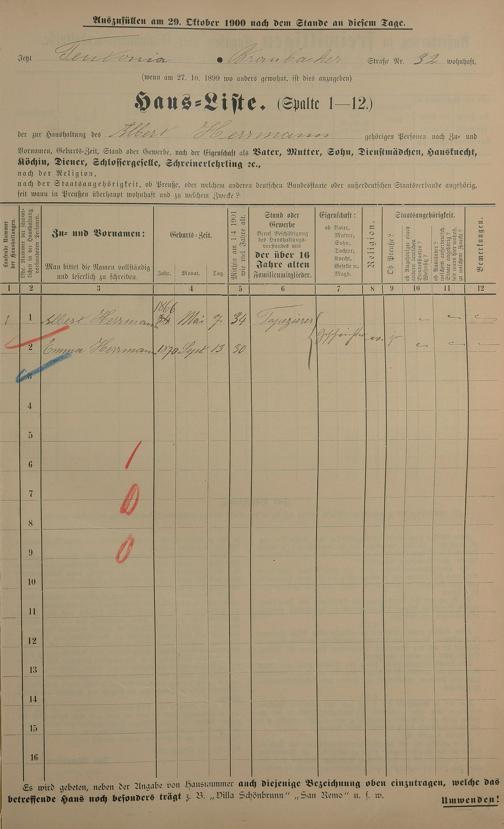 Auszufüllen am 29. Oktober 1900 nach dem Stande an diesem Tage.
Jetzt Teutonia • Straße Nr. 32 wohnhaft.
(wenn am 27. 10. 1899 wo anders gewohnt, ist dies anzugeben)
Haus-Liste. (Spalte 1—12.)
der zur Haushaltung des Albert Herrmann gehörigen Personen nach Zu- und
Vornamen, Geburts-Zeit, Stand oder Gewerbe, nach der Eigenschaft als Vater, Mutter, Sohn, Dienstmädchen, Hausknecht,
Köchin, Diener, Schlossergeselle, Schreinerlehrling 2c.,
nach der Religion,
nach der Staatsangehörigkeit, ob Preuße, oder welchem anderen deutschen Bundesstaate oder außerdeutschen Staatsverbande angehörig,
seit wann in Preußen überhaupt wohnhaft und zu welchem Zwecke?
Zu- und Vornamen:
Man bittet die Namen vollständig
und leserlich zu schreiben.
Geburts-Zeit.
Jahr. Monat. Tag.
Mithin am 1. 4. 1901
wie viel Jahre alt.
Stand oder
Gewerbe
der über 16
Jahre alten
Familienmitglieder.
Eigenschaft:
ob Vater,
Mutter,
Sohn,
Tochter,
Knecht,
Geselle u.
Magd.
Religion.
Staatsangehörigkeit.
Ob Preuße?
Bemerkungen.
1 2 3 4 5 6 7 8 9 10 11 12
1 1 Albert Herrmann 1866 Mai 7. 34 Tapezierer
2 Emma Herrmann 1870 Sept. 13 30
3
4
5
6 1
7 0
8
9 0
10
11
12
13
14
15
16
Es wird gebeten, neben der Angabe von Hausnummer auch diejenige Bezeichnung oben einzutragen, welche das
betreffende Haus noch besonders trägt z. B. „Villa Schönbrunn" „San Remo" u. s. w.
Umwenden!